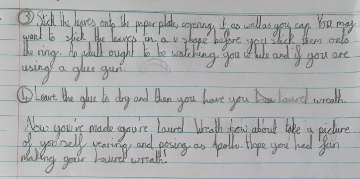 ③ Stick the leaves onto the paper plate, covering it as well as you can. You may
want to stick the leaves in a v shape before you stick them onto
the ring. An adult ought to be watching you while and if you are
using a glue gun.
④ Leave the glue to dry and then you have you laurel wreath.
Now you've made you're laurel wreath how about take a picture
of yourself wearing and posing as Apollo. Hope you had fun
making your laurel wreath!